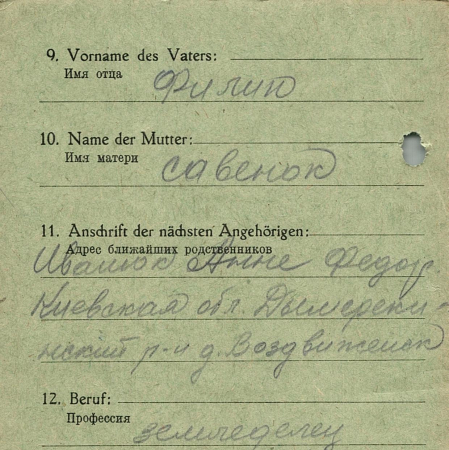 9. Vorname des Vaters:
Имя отца
Филип
10. Name der Mutter:
Имя матери
Савенок
11. Anschrift der nächsten Angehörigen:
Адрес ближайших родственников
Иванюк Анне Федор.
Киевская обл. Дымерски-
нский р-н д. Воздвиженск
12. Beruf:
Профессия
земледелец